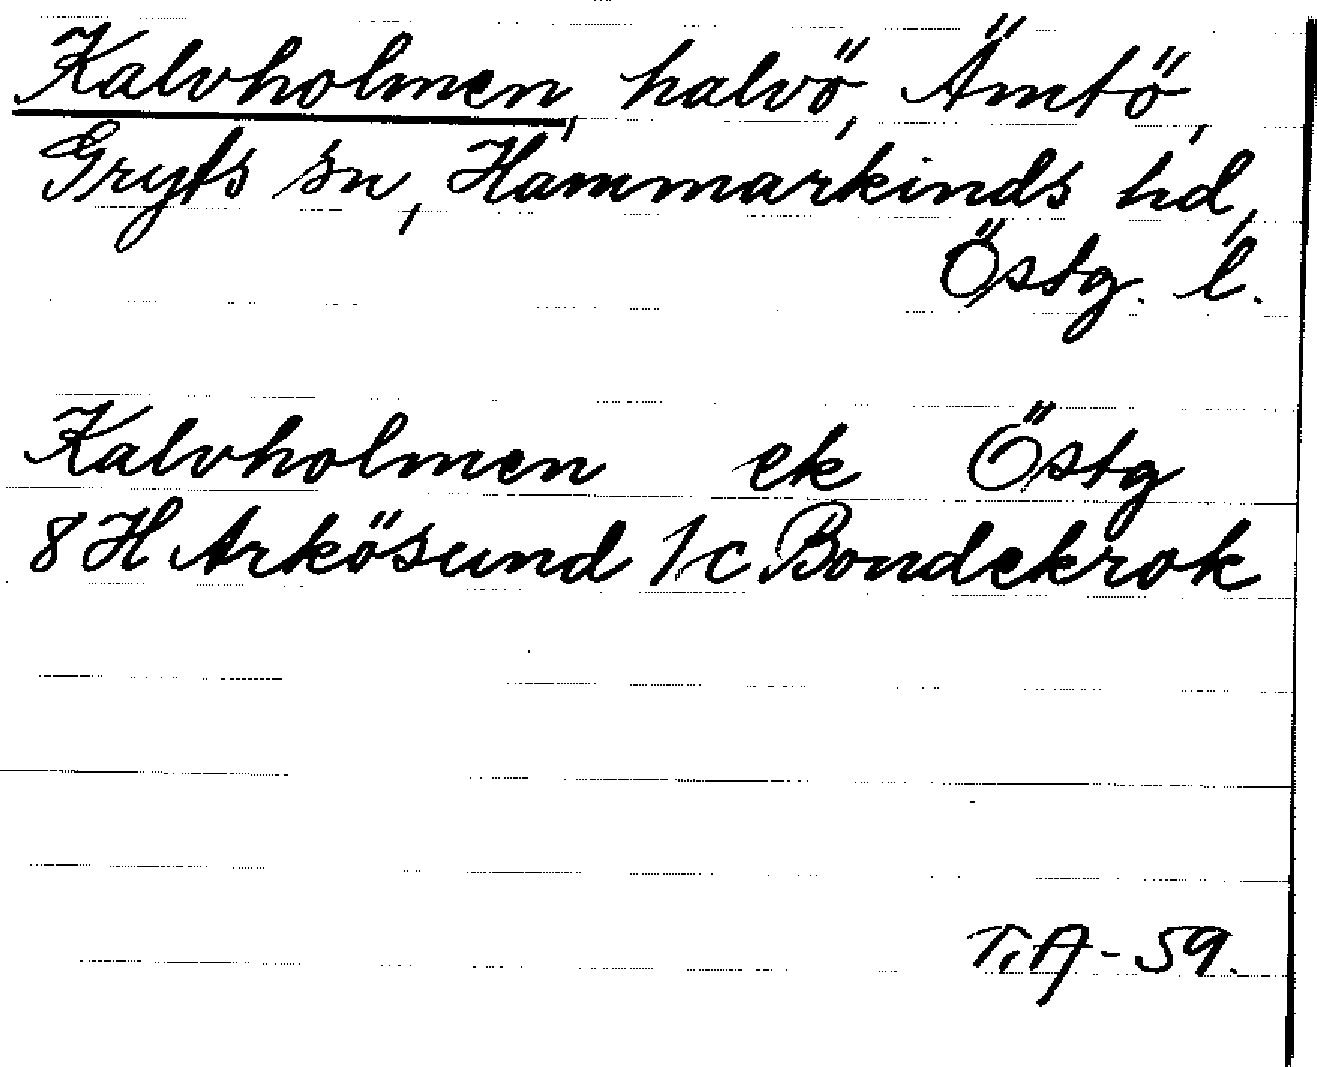 Kalvholmen, halvö, Ämtö,
Gryts sn, Hammarkinds hd,
Östg. l.
Kalvholmen ek Östg
8 H Arkösund 1c Bondekrok
T.A-59.